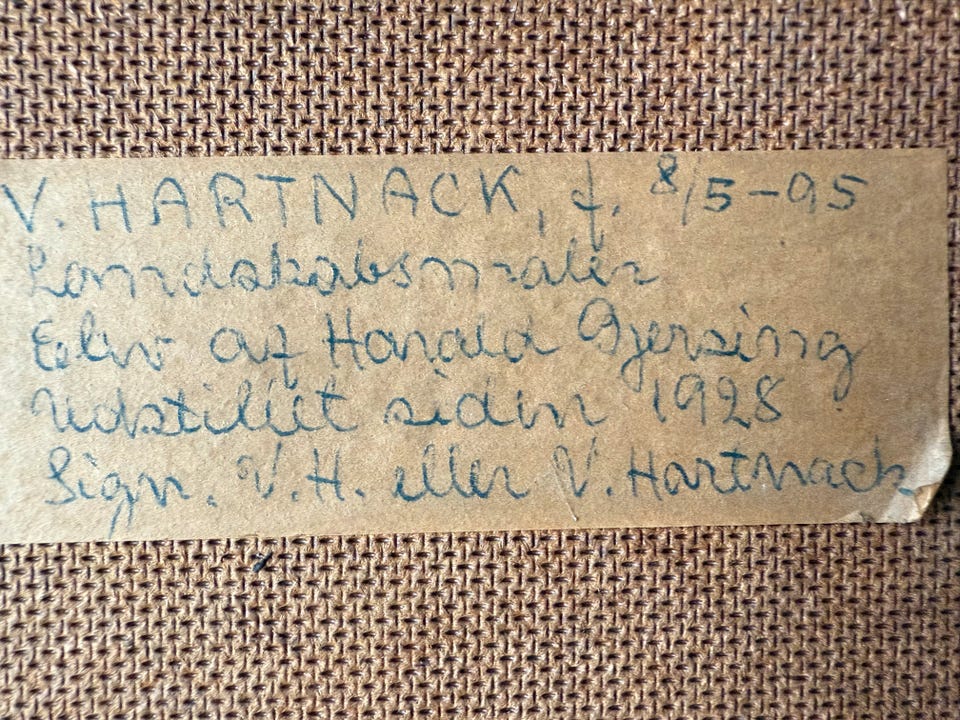 V. HARTNACK, f. 8/5-95
Landskabsmaler
Elev af Harald Gjersing
Udstillet siden 1928
Sign. V.H. eller V. Hartnack